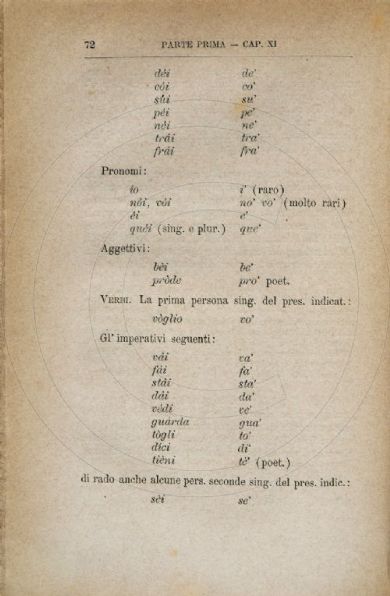 72 PARTE PRIMA — CAP. XI
déi de'
cói co'
súi su'
péi pe'
néi ne'
trái tra'
frái fra'
Pronomi:
io i' (raro)
nói, vói no' vo' (molto rari)
éi e'
quéi (sing. e plur.) que'
Aggettivi:
bèi be'
pròde pro' poet.
VERBI. La prima persona sing. del pres. indicat.:
vòglio vo'
Gl' imperativi seguenti:
vái va'
fái fa'
stái sta'
dái da'
védi ve'
guárda gua'
tògli to'
díci di'
tièni te' (poet.)
di rado anche alcune pers. seconde sing. del pres. indic.:
sèi se'